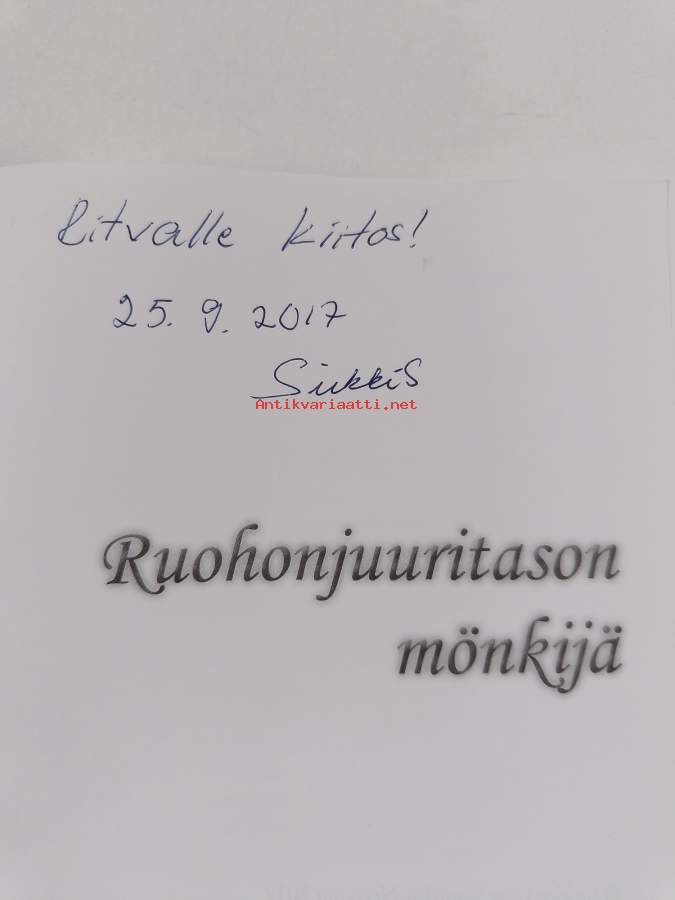 Ritvalle kiitos!
25. 9. 2017
Sirkkis
Antikvariaatti.net
Ruohonjuuritason
mönkijä